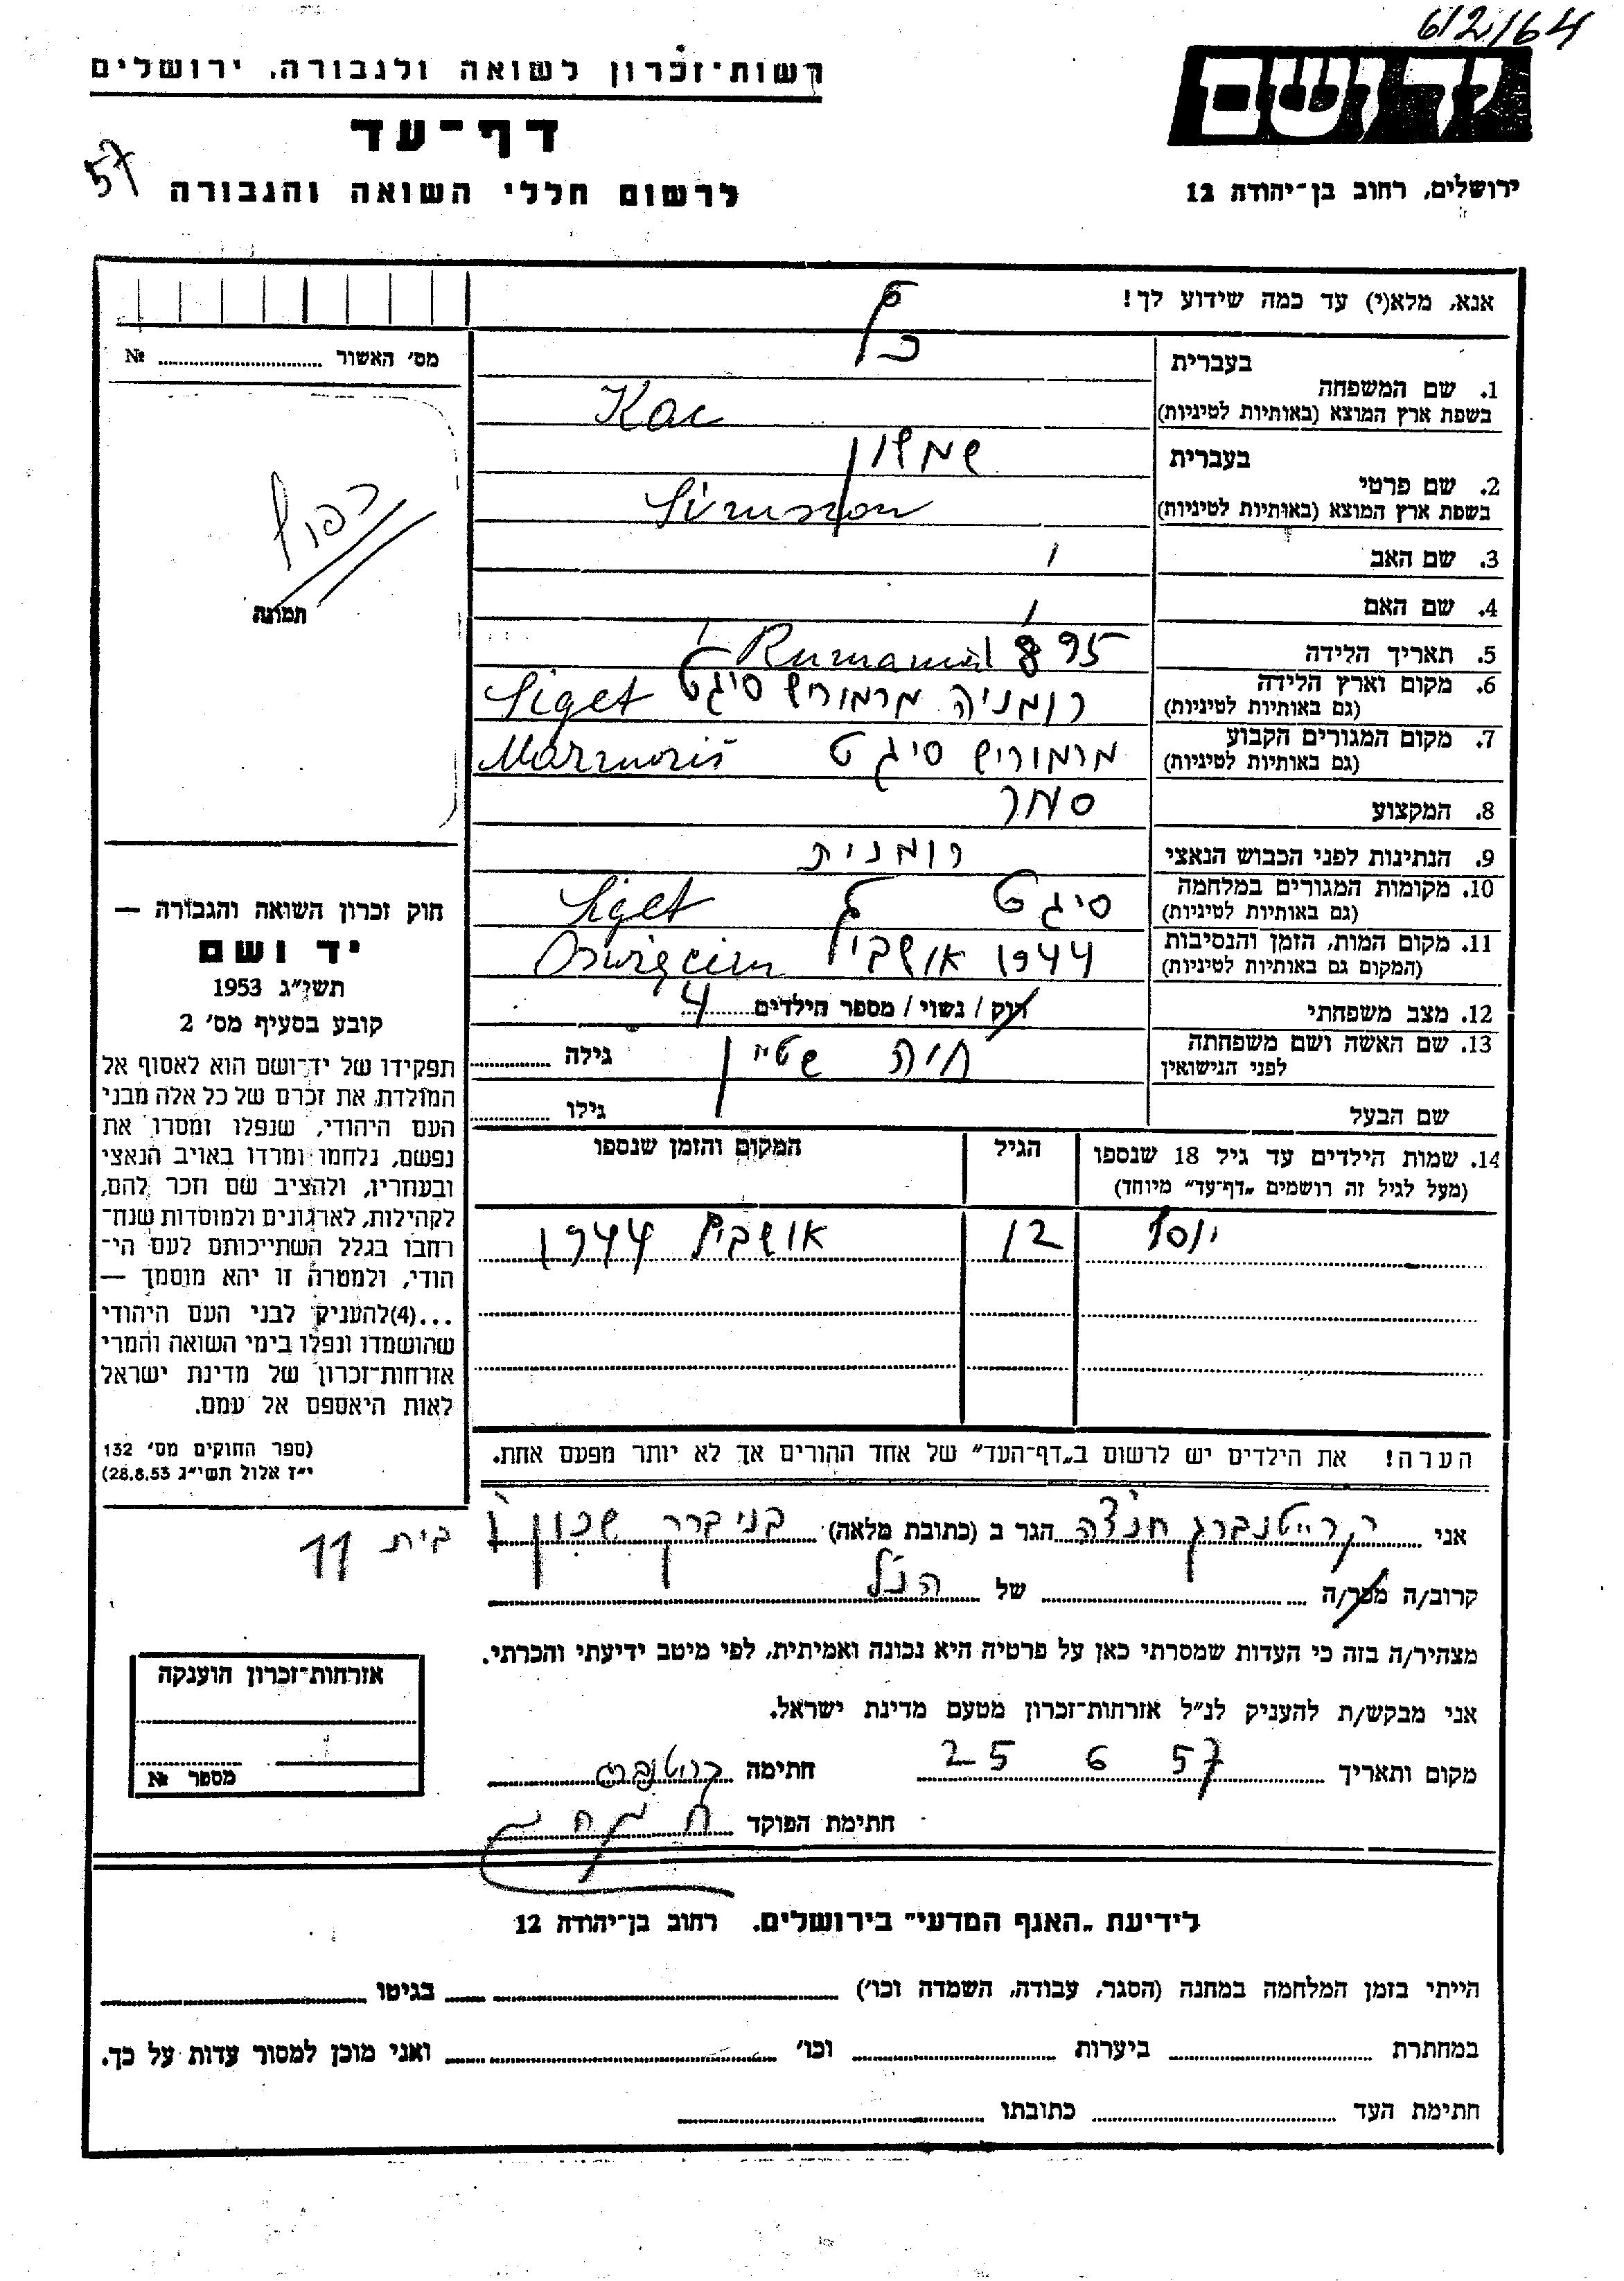 6/2/64
ידושם
ירושלים, רחוב בן־יהודה 12
רשות־זכרון לשואה ולגבורה, ירושלים
דף־עד
לרשום חללי השואה והגבורה
57
אנא, מלא(י) עד כמה שידוע לך!
מס' האשור № 
תמונה
בעברית כץ
1. שם המשפחה
בשפת ארץ המוצא (באותיות לטיניות) Kac
בעברית שמשון
2. שם פרטי
בשפת ארץ המוצא (באותיות לטיניות) Simson
3. שם האב
4. שם האם
5. תאריך הלידה 1895
6. מקום וארץ הלידה Rumania
(גם באותיות לטיניות) רומניה מרמוריש סיגט Siget
7. מקום המגורים הקבוע
(גם באותיות לטיניות) מרמוריש סיגט Marmoriš
8. המקצוע סוחר
9. הנתינות לפני הכבוש הנאצי רומנית
10. מקומות המגורים במלחמה
(גם באותיות לטיניות) סיגט Siget
11. מקום המות, הזמן והנסיבות
(המקום גם באותיות לטיניות) 1944 אושביץ Oswięcim
12. מצב משפחתי רוק / נשוי / מספר הילדים 4
13. שם האשה ושם משפחתה לפני הנישואין חיה שטיין גילה
שם הבעל גילו
14. שמות הילדים עד גיל 18 שנספו
(מעל לגיל זה רושמים „דף־עד” מיוחד)
הגיל
המקום והזמן שנספו
יוסף 12 אושביץ 1944
הערה! את הילדים יש לרשום ב„דף־העד” של אחד ההורים אך לא יותר מפעם אחת.
חוק זכרון השואה והגבורה —
יד ושם
תשי״ג 1953
קובע בסעיף מס' 2
תפקידו של יד־ושם הוא לאסוף אל
המולדת את זכרם של כל אלה מבני
העם היהודי, שנפלו ומסרו את
נפשם, נלחמו ומרדו באויב הנאצי
ובעוזריו, ולהציב שם וזכר להם,
לקהילות, לארגונים ולמוסדות שנח־
רבו בגלל השתייכותם לעם הי־
הודי, ולמטרה זו יהא מוסמך —
...(4)להעניק לבני העם היהודי
שהושמדו ונפלו בימי השואה והמרי
אזרחות־זכרון של מדינת ישראל
לאות היאספם אל עמם.
(ספר החוקים מס' 132
י״ז אלול תשי״ג 28.8.53)
אני קרייטנברג חנצה הגר ב (כתובת מלאה) בני ברק שכון ו בית 11
קרוב/ה מכר/ה של הנ״ל
מצהיר/ה בזה כי העדות שמסרתי כאן על פרטיה היא נכונה ואמיתית, לפי מיטב ידיעתי והכרתי.
אני מבקש/ת להעניק לנ״ל אזרחות־זכרון מטעם מדינת ישראל.
מקום ותאריך 25 6 57 חתימה
חתימת הפוקד
אזרחות־זכרון הוענקה
מספר №
לידיעת „האגף המדעי” בירושלים, רחוב בן־יהודה 12
הייתי בזמן המלחמה במחנה (הסגר, עבודה, השמדה וכו') בגיטו
במחתרת ביערות וכו' ואני מוכן למסור עדות על כך.
חתימת העד כתובתו